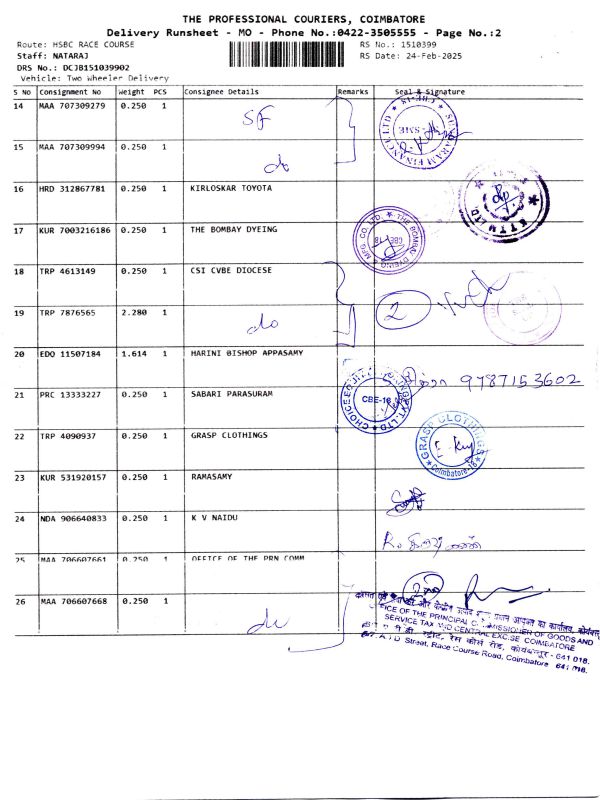 THE PROFESSIONAL COURIERS, COIMBATORE
Delivery Runsheet - MO - Phone No.:0422-3505555 - Page No.:2
Route: HSBC RACE COURSE
RS No.: 1510399
Staff: NATARAJ
RS Date: 24-Feb-2025
DRS No.: DCJB151039902
Vehicle: Two Wheeler Delivery
S No Consignment No Weight PCS Consignee Details Remarks Seal & Signature
14 MAA 707309279 0.250 1 SF
SUNDARAM FINANCE LTD
15 MAA 707309994 0.250 1 do
16 HRD 312867781 0.250 1 KIRLOSKAR TOYOTA
17 KUR 7003216186 0.250 1 THE BOMBAY DYEING
THE BOMBAY DYEING & MFG. CO. LTD.
18 TRP 4613149 0.250 1 CSI CVBE DIOCESE
2
19 TRP 7876565 2.280 1 do
20 EDO 11507184 1.614 1 HARINI BISHOP APPASAMY
9787153602
21 PRC 13333227 0.250 1 SABARI PARASURAM
CBE-18
22 TRP 4090937 0.250 1 GRASP CLOTHINGS
GRASP CLOTHINGS
Coimbatore-18
23 KUR 531920157 0.250 1 RAMASAMY
24 NDA 906640833 0.250 1 K V NAIDU
25 MAA 706607661 0.250 1 OFFICE OF THE PRN COMM
26 MAA 706607668 0.250 1 do
OFFICE OF THE PRINCIPAL COMMISSIONER OF GOODS AND
SERVICE TAX AND CENTRAL EXCISE COIMBATORE
स्ट्रीट, रेस कोर्स रोड, कोयंबत्तूर - 641 018.
Street, Race Course Road, Coimbatore 641 018.